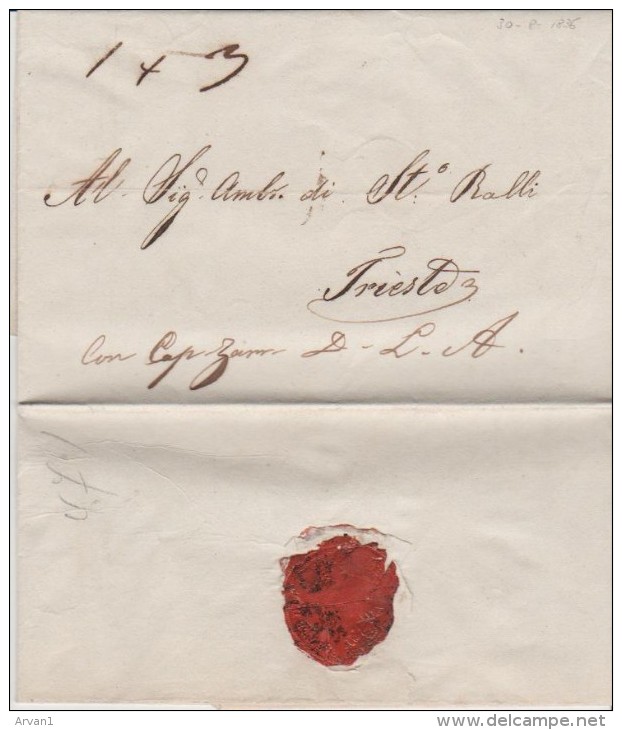 30-8-1836
1 + 3
Al Sigʳ Ambr. di Stº Ralli
Trieste
Con Cap. D - L. A.
Arvan1
www.delcampe.net